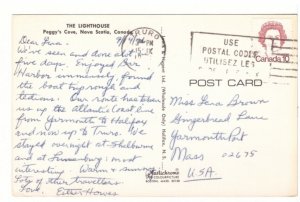 THE LIGHTHOUSE
Peggy's Cove, Nova Scotia, Canada
Dear Gena,
We've seen and done a lot
five days. Enjoyed Bar
Harbor immensely, found
the boat trip rough and
tedious. Our route has taken
us up the Atlantic Coast line
from Yarmouth to Halifax
and now up to Truro. We
stayed overnight at Shelburne
and at Lunenburg; most
interesting. Warm + sunny.
Lots of other travellers.
Love, Esther Howes
TRURO
PM
USE
POSTAL CODES
UTILISEZ LES
Canada 10
POST CARD
Miss Gena Brown
Gingerbread Lane
Yarmouth Port
Mass 02675
USA